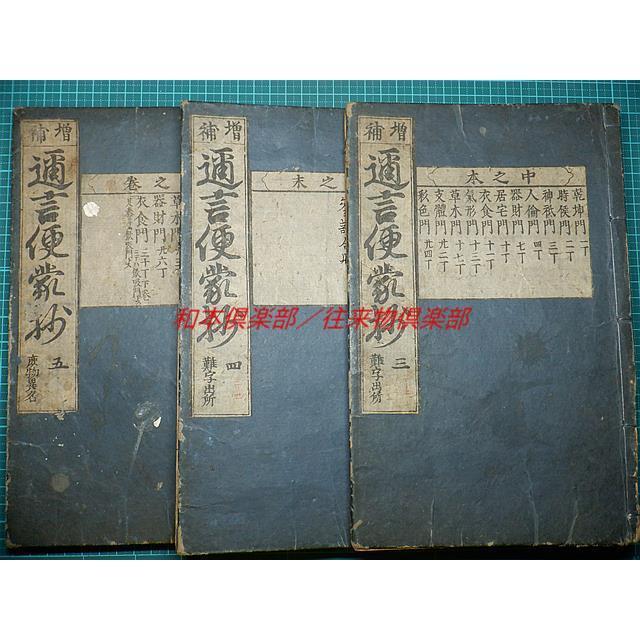 増補
邇言便蒙抄
三
難字出所
中之本
乾坤門 一丁
時候門 二丁
神祇門 三丁
人倫門 四丁
器財門 七丁
居宅門 十丁
衣食門 十一丁
氣形門 十二丁
草木門 十七丁
支體門 廿二丁
彩色門 廿四丁
増補
邇言便蒙抄
四
難字出所
之末
増補
邇言便蒙抄
五
之卷
草木門
器財門
衣食門
和本倶楽部／往来物倶楽部